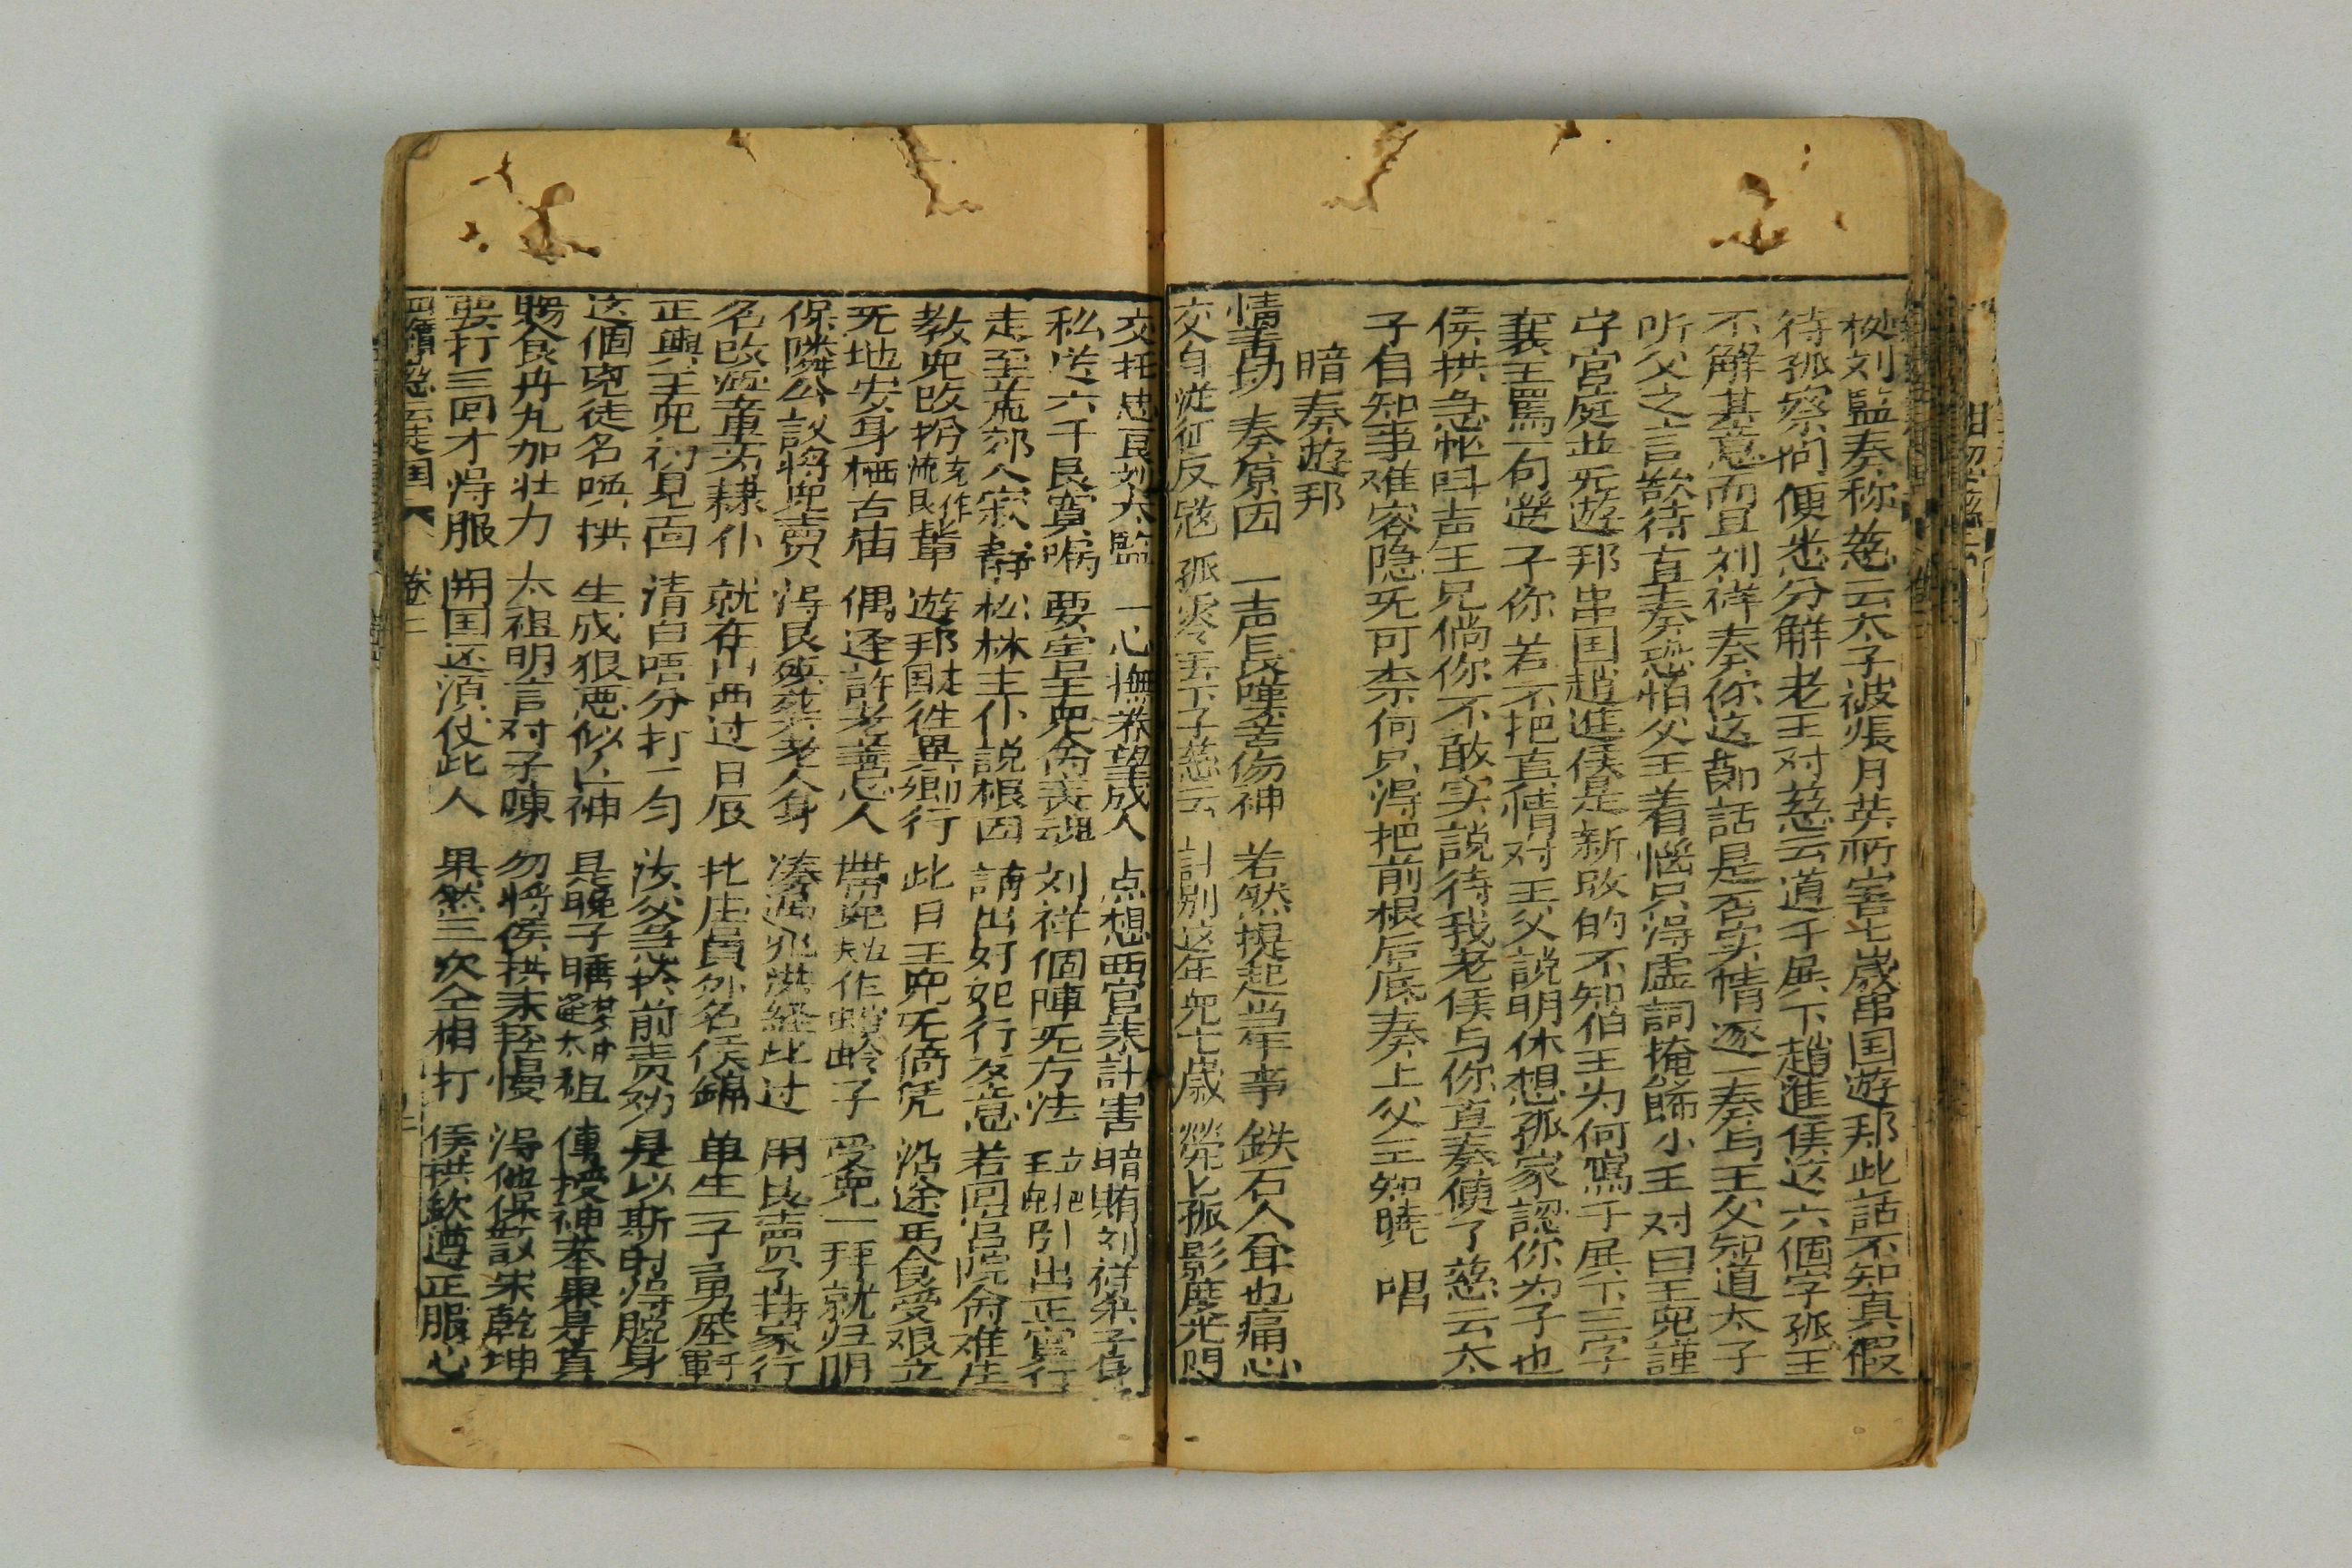 刘監奏称慈云太子被張月英所害七歲串国遊邦此話不知真假
待孤察问便悉分解老王对慈云道千展下趙進侯这六個字孤王
不解其意而且刘祥奏你这莭話是否实情逐一奏与王父知道太子
听父之言欲待直奏恐怕父王着惱只得虚詞掩餙小王对曰王児謹
守官庭並无遊邦串国趙進侯是新改的不知伯王为何寫千展下三字
襄王罵一句逆子你若不把直情对王父説明休想孤家認你为子也
侯拱急忙叫声王兄倘你不敢实説待我老侯与你直奏便了慈云太
子自知事难容隐无可奈何只得把前根后底奏上父王知曉 唱
暗奏遊邦
情 奏原因 一声長嘆苦伤神 若然提起当年事 鉄石人耸也痛心
交自從征反 孤零丟下子慈云 計别这年児七歲 榮匕孤影度光門
交托忠良妙太監 一心撫养望成人 点想西宫来計害 暗賄刘祥杀子身
私送六千艮寶 要害王児命丧魂 刘祥個陣无方法 立把王児引出正宫行
走至荒郊人寂静 松林主仆説根因 請出好 行歹意 若回宫院命难生
教児改扮充作流民輩 遊邦走国徃異鄉行 此日王児无倚凭 沿途馬食受艰立
无地安身栖古庙 偶逢許老善心人 帶児 作螟蛉子 受児一拜就归阴
保隣公議將児賣 得艮殯葬老人身 湊遇 洪経此过 用艮賣了 家行
名改 童为隸仆 就在山西过日辰 庄員外名侯錦 单生一子勇 軒
正與王児初見面 清白唔分打一匀 汝父急扶前责効 是以斯时得脱身
这個児徒名唔拱 生成狠悪似凶神 是晚子睡梦中逢太祖 傳授神 果是真
賜食丹丸加壮力 太祖明言对子陳 勿將侯拱来輕慢 得他保 宋乾坤
要打三回才得服 開国还須仗此人 果然三次全相打 侯拱欽遵正服心
卷二